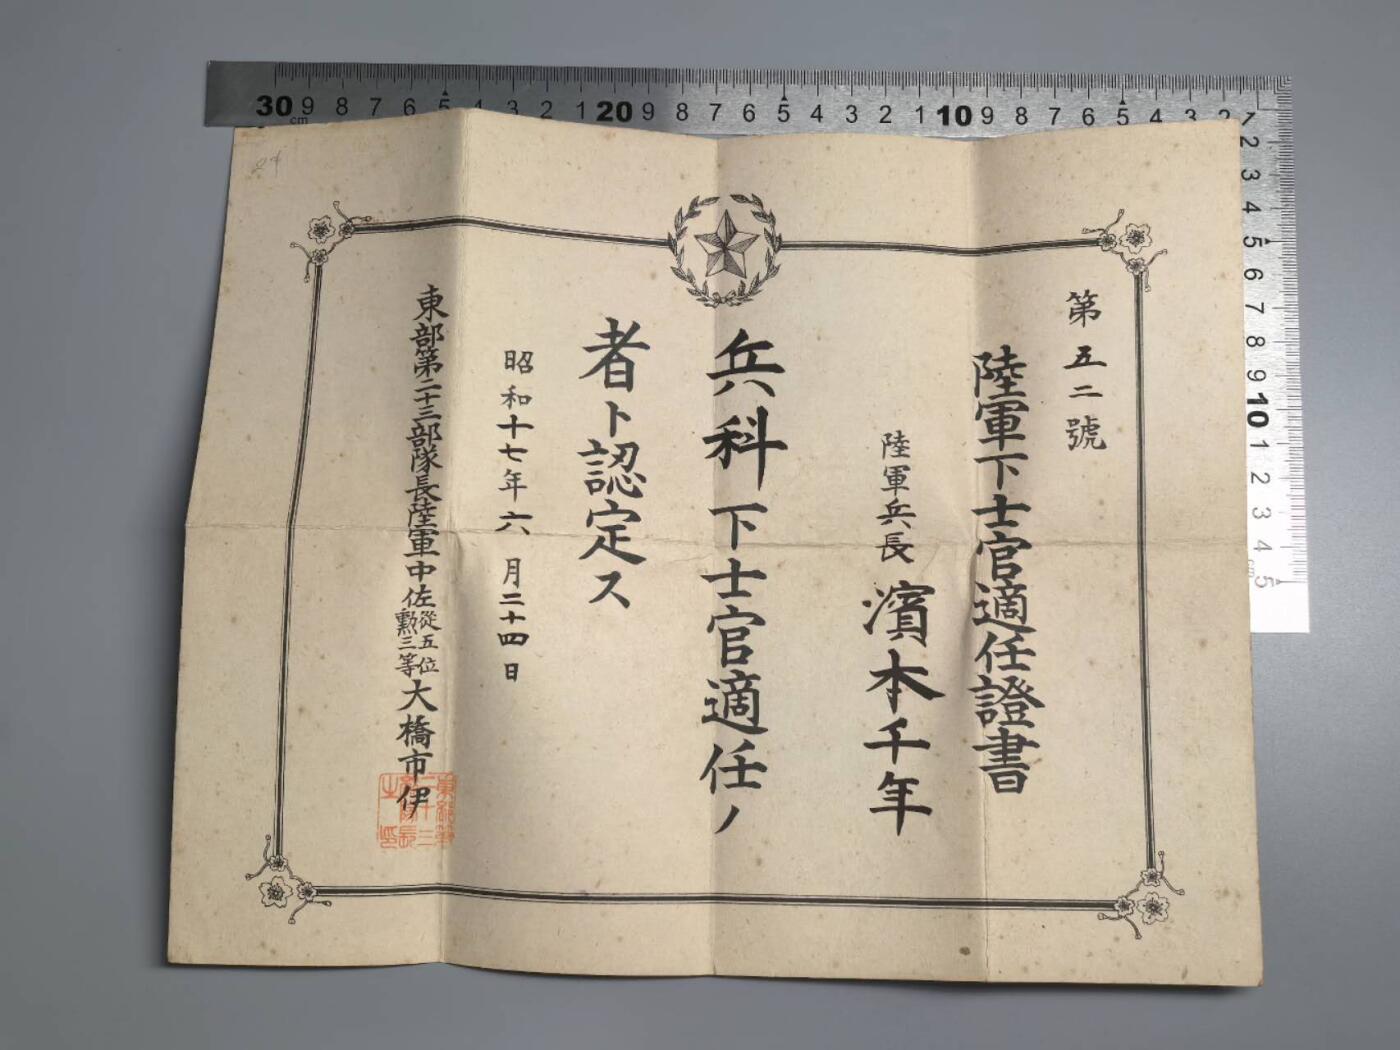 第五二號
陸軍下士官適任證書
陸軍兵長 濱本千年
兵科下士官適任ノ
者ト認定ス
昭和十七年六月二十四日
東部第二十三部隊長陸軍中佐從五位勲三等大橋市伊
東部第
二十三
部隊長
之印
30 9 8 7 6 5 4 3 2 1 20 9 8 7 6 5 4 3 2 1 10 9 8 7 6 5 4 3 2 1
cm
2 3 4 5 6 7 8 9 10 1 2 3 4 5
cm